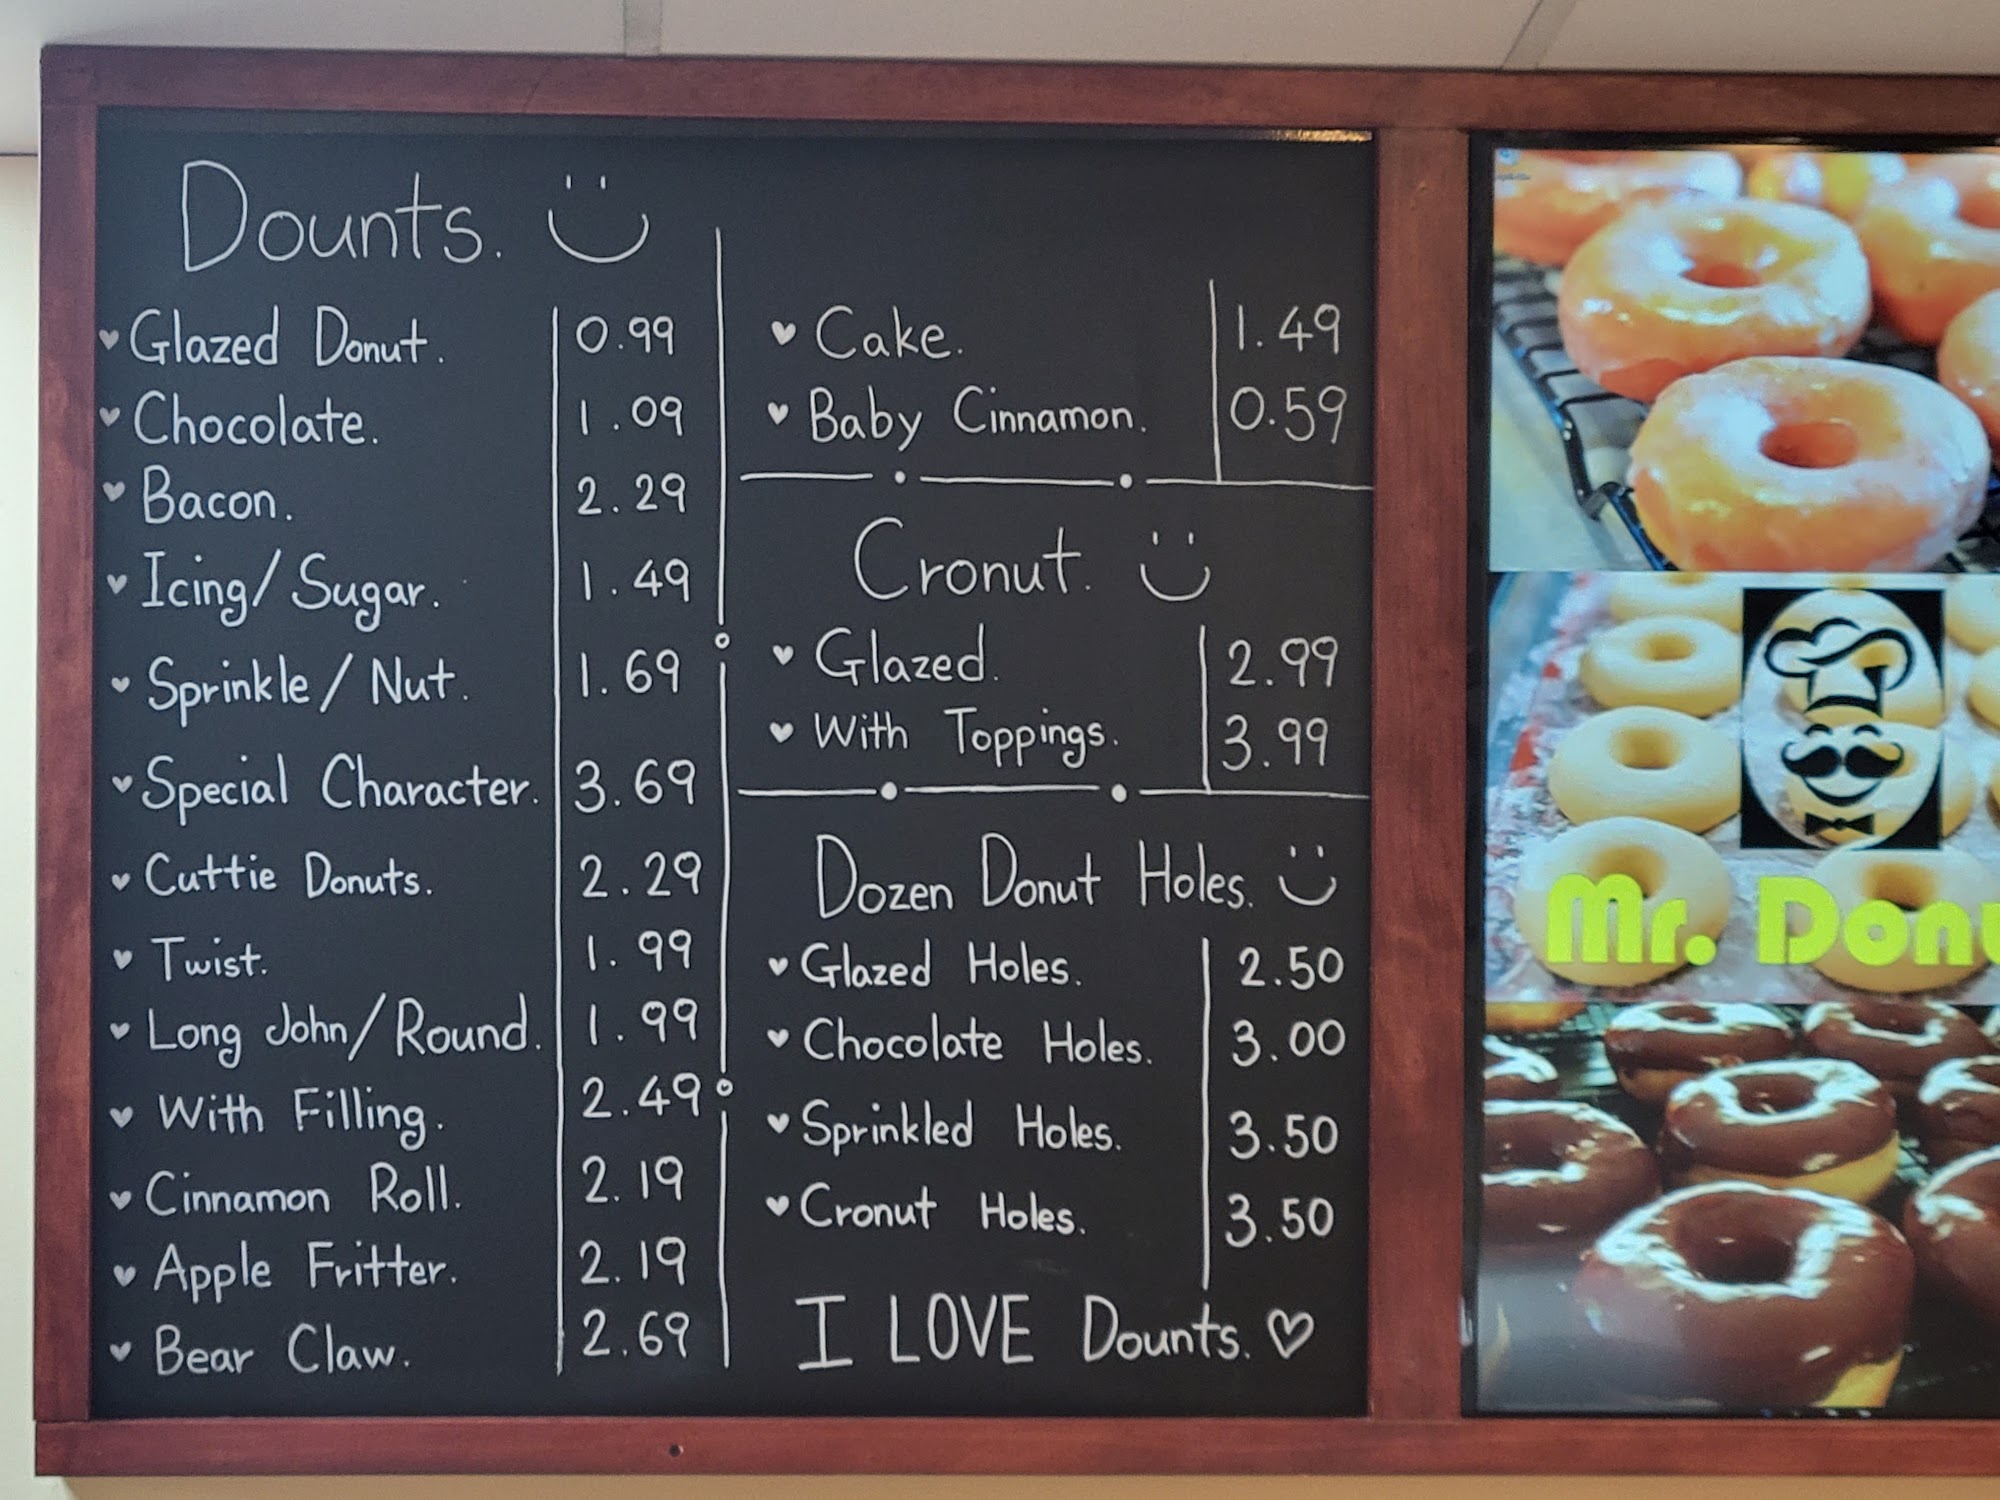 Dounts.
Glazed Donut. 0.99
Chocolate. 1.09
Bacon. 2.29
Icing/Sugar. 1.49
Sprinkle/Nut. 1.69
Special Character. 3.69
Cuttie Donuts. 2.29
Twist. 1.99
Long John/Round. 1.99
With Filling. 2.49
Cinnamon Roll. 2.19
Apple Fritter. 2.19
Bear Claw. 2.69
Cake. 1.49
Baby Cinnamon. 0.59
Cronut.
Glazed. 2.99
With Toppings. 3.99
Dozen Donut Holes.
Glazed Holes. 2.50
Chocolate Holes. 3.00
Sprinkled Holes. 3.50
Cronut Holes. 3.50
I LOVE Dounts.
Mr. Donu